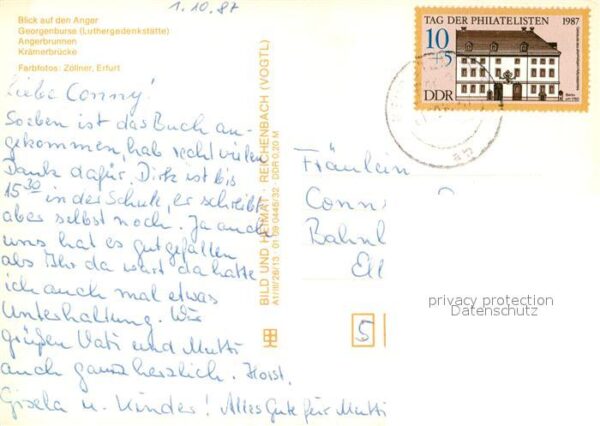 1.10.87
Blick auf den Anger
Georgenburse (Luthergedenkstätte)
Angerbrunnen
Krämerbrücke
Farbfotos: Zöllner, Erfurt
Liebe Conny!
Soeben ist das Buch an-
gekommen, hab recht vielen
Dank dafür. Dirk ist bis
15 30 in der Schule, er schreibt
aber selbst noch. Ja auch
uns hat es gut gefallen
als Ihr da wart da hatte
ich auch mal etwas
Unterhaltung. Wir
grüßen Vati und Mutti
auch ganz herzlich. Horst,
Gisela u. Kinder! Alles Gute für Mutti
BILD UND HEIMAT · REICHENBACH (VOGTL)
A1/III/26/13 01 09 0445/32 DDR 0,20 M
TAG DER PHILATELISTEN 1987
10
+5
DDR
Fräulein
Conn
Bahnh
Ell
5
privacy protection
Datenschutz